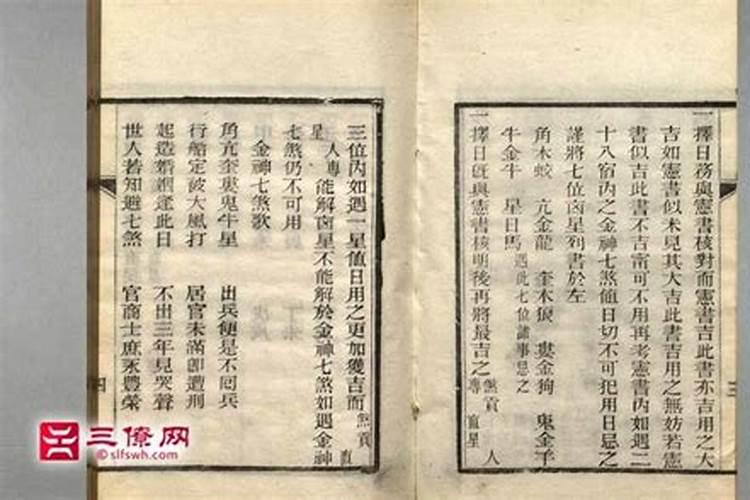 一擇日務與憲書核對而憲書吉此書亦吉用之大
吉如憲書似未見其大吉此書吉用之無妨若憲
書似吉此書不吉甯可不用再考憲書內如遇二
十八宿內之金神七煞值日切不可犯用日忌之
謹將七位凶星列書於左
角木蛟 亢金龍 奎木狼 婁金狗 鬼金羊
牛金牛 星日馬 遇此七位諸事忌之
一擇日既與憲書核明後再將最吉之 煞貢 專 直星 人
三
三位內如遇一星值日用之更加獲吉而 煞貢 直
星 人專 能解凶星不能解於金神七煞如遇金神
七煞仍不可用
金神七煞歌
角亢奎婁鬼牛星 出兵便是不囘兵
行船定被大風打 居官未滿卽遭刑
起造婚姻逢此日 不出三年見哭聲
世人若知避七煞 官商士庶永豐榮
四
三僚网
©slfswh.com